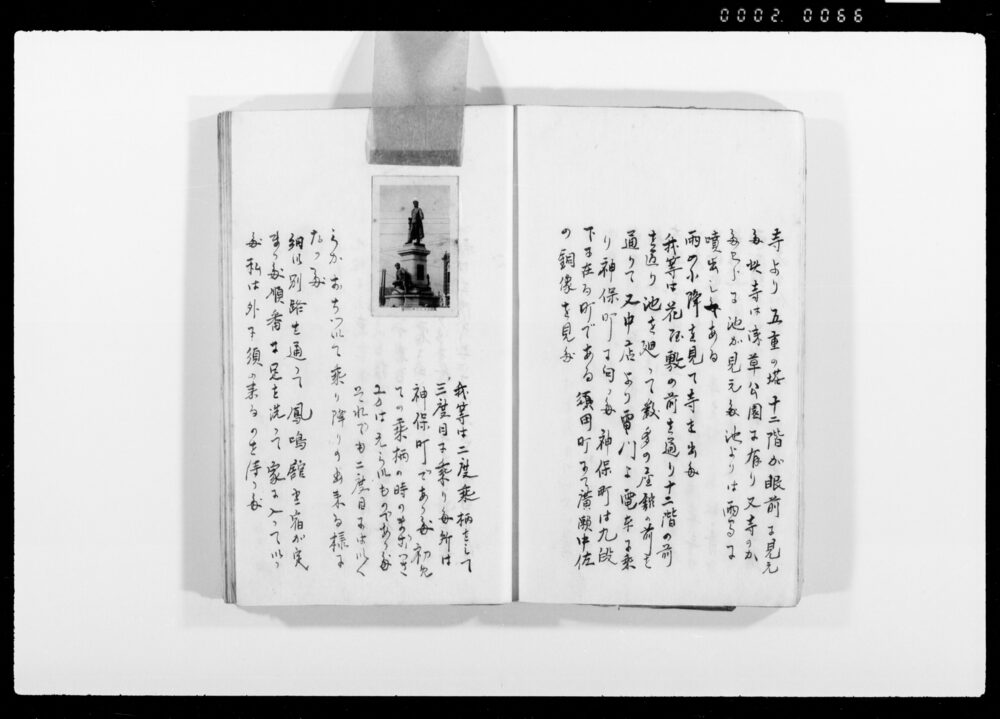 0002.0066
寺より五重の塔十二階が眼前に見え
た此寺は浅草公園に有り又寺のか
たはらに池が見えた池よりは両方に
噴出してある
雨の小降を見て寺を出た
我等は花屋敷の前を通り十二階の前
を通り池を廻って数多の屋舘の前を
通りて又中店より雷門より電車に乗
り神保町に向った神保町は九段
下に在る町である須田町にて廣瀬中佐
の銅像を見た
我等は二度乗柄をして
三度目に乗りた所は
神保町であった初め
ての乗柄の時のまごつき
よは
それでも二度目には
らかおちついて乗り降りの出来る様に
なった
細い別路を通って鳳鳴舘と宿が定
まった順番に足を洗って家に入って
た私は外に須の来るのを待った